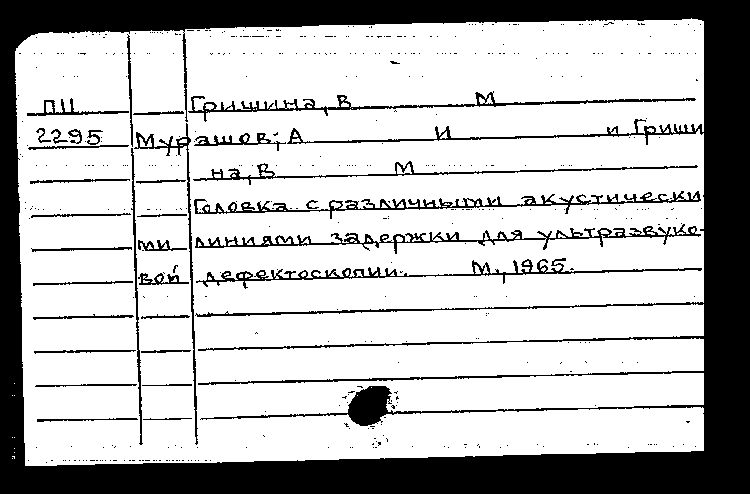 ПП Гришина, В М
2295 Мурашов, А И и Гриши
на, В М
Головка с различными акустически
ми линиями задержки для ультразвуко-
вой дефектоскопии. М., 1965.